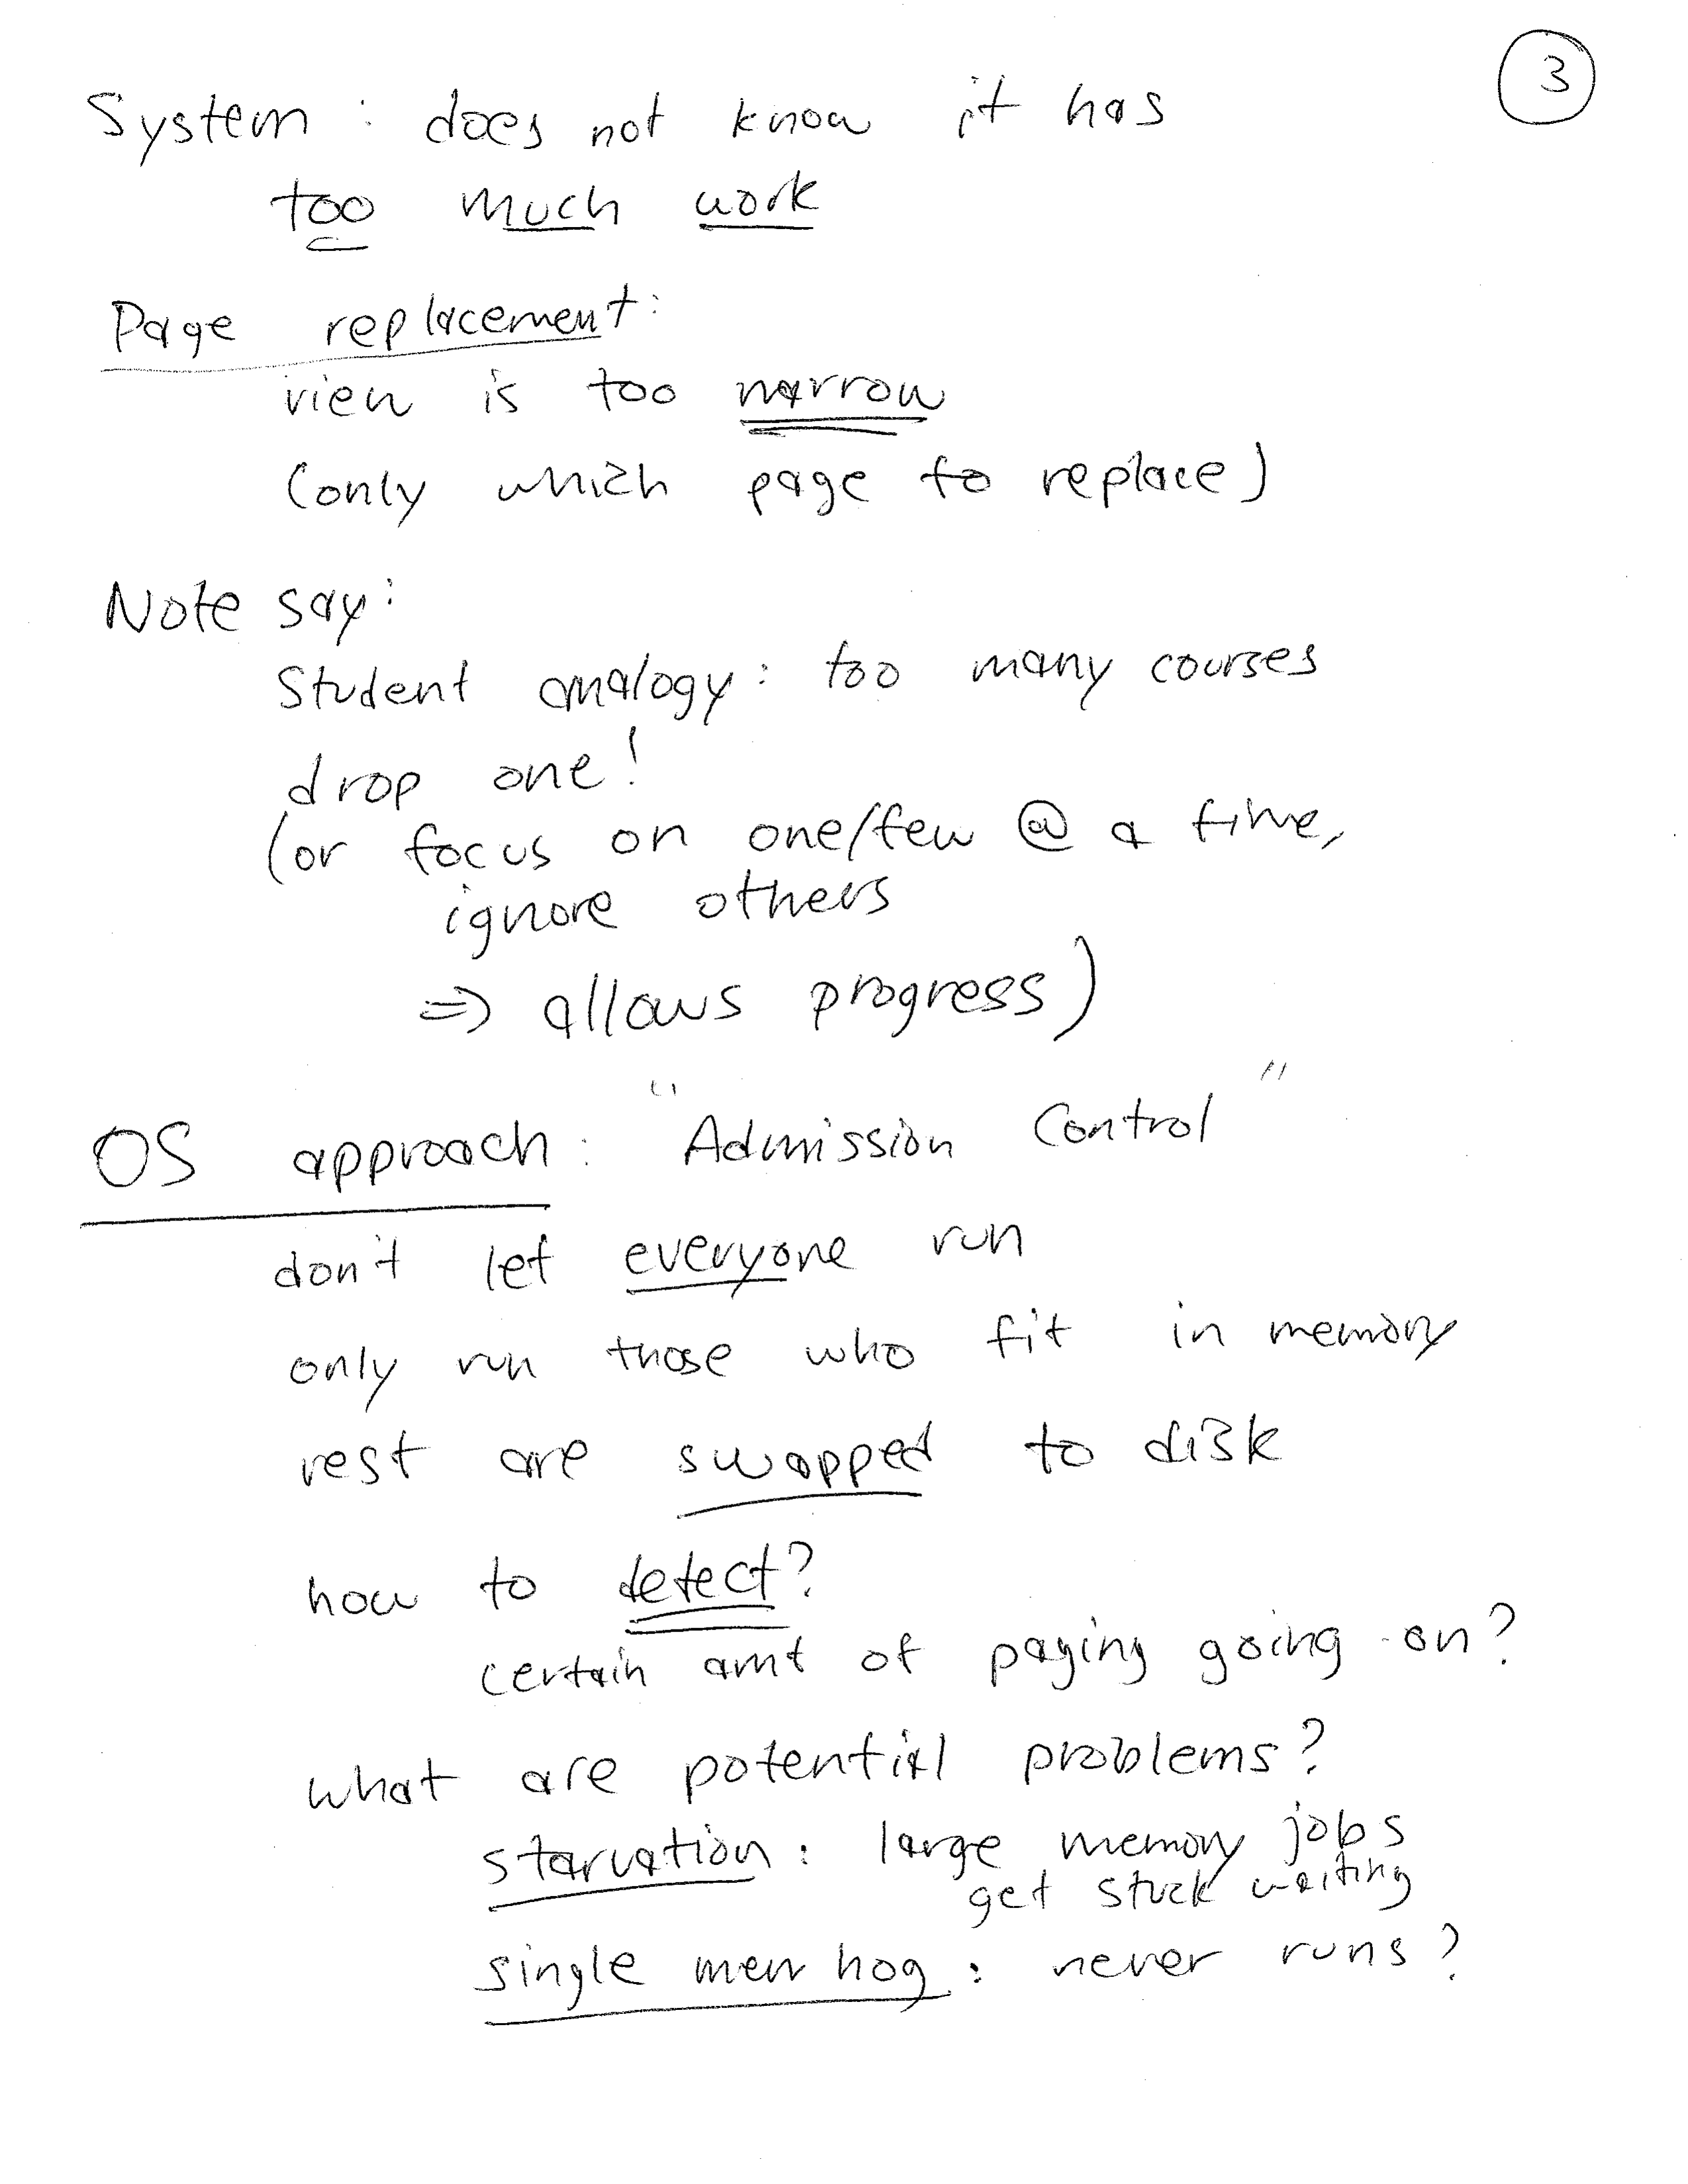 3
System : does not know it has
too much work
Page replacement:
view is too narrow
(only which page to replace)
Note say:
Student analogy: too many courses
drop one!
(or focus on one/few @ a time,
ignore others
=> allows progress)
OS approach: "Admission Control"
don't let everyone run
only run those who fit in memory
rest are swapped to disk
how to detect?
certain amt of paging going on?
what are potential problems?
starvation: large memory jobs
get stuck waiting
single mem hog: never runs?